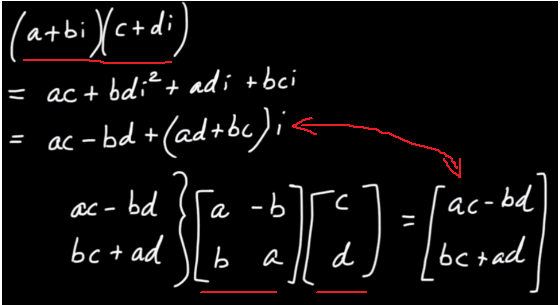 (a+bi)(c+di)
= ac + bdi² + adi + bci
= ac - bd + (ad+bc)i
ac - bd } [a -b] [c] = [ac - bd]
bc + ad } [b a] [d] = [bc + ad]